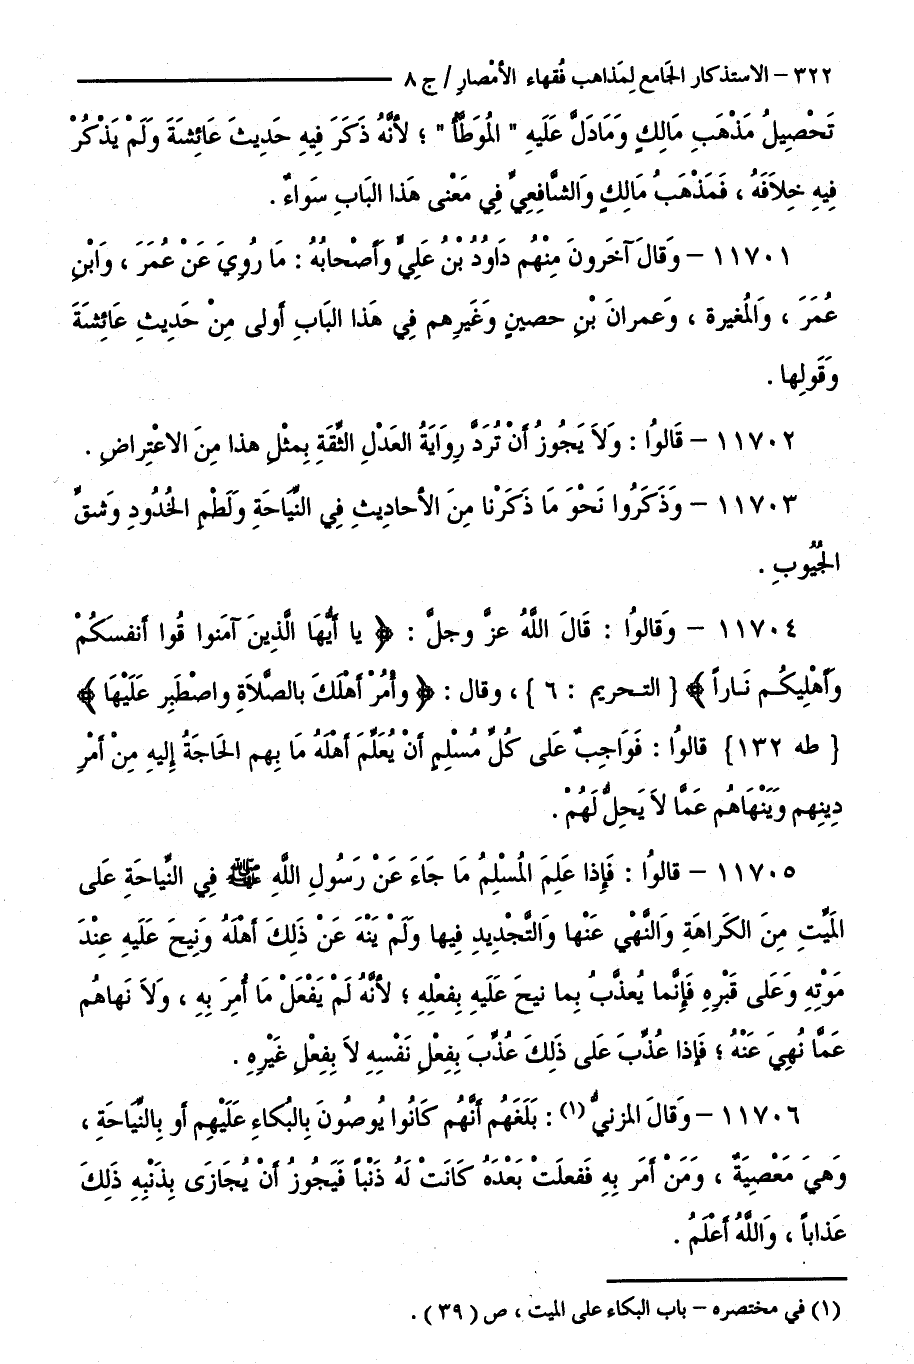 ٣٢٢ - الاستذكار الجَامع لِمَذاهب فُقهاء الأمْصار / ج ٨
تَحْصِيلُ مَذْهَبِ مَالِكٍ وَمَادَلَّ عَلَيهِ " المُوَطَّأ " ؛ لأنَّهُ ذَكَرَ فِيهِ حَدِيثَ عَائِشَةَ وَلَمْ يَذْكُرْ
فِيهِ خِلاَفَهُ ، فَمَذْهَبُ مَالِكٍ وَالشَّافِعِيِّ فِي مَعْنى هَذا البَابِ سَواءٌ .
١١٧٠١ - وَقَالَ آخَرونَ مِنْهُم دَاوُدُ بْنُ عَلِيٍّ وَأَصْحابُهُ : مَا رُوِيَ عَنْ عُمَرَ ، وَابْنِ
عُمَرَ ، وَالمُغيرة ، وَعمرانَ بْنِ حصينٍ وَغَيرِهِم فِي هَذا البَابِ أَولى مِنْ حَدِيثِ عَائِشَةَ
وَقَولِها .
١١٧٠٢ - قَالوُا : وَلاَ يَجُوزُ أَنْ تُرَدَّ رِوَايَةُ العَدْلِ الثِّقَةِ بِمثْلِ هذا مِنَ الاعْتِراضِ .
١١٧٠٣ - وَذَكَرُوا نَحْوَ مَا ذَكَرْنا مِنَ الأحادِيثِ فِي النِّيَاحَةِ ولَطْمِ الخُدُودِ وَشقِّ
الجُيُوبِ .
١١٧٠٤ - وَقالوُا : قَالَ اللَّهُ عزَّ وجلَّ : ﴿ يا أَيُّهَا الَّذِينَ آمَنوا قُوا أنفسَكُمْ
وأَهْلِيكُم نَاراً ﴾ { التحريم : ٦ } ، وقال : ﴿ وأْمُرْ أهْلَكَ بالصَّلاَةِ واصْطَبِر عَلَيْهَا ﴾
{ طه ١٣٢} قالوُا : فَوَاجِبٌ عَلى كُلِّ مُسْلِمٍ أنْ يُعَلِّمَ أهْلَهُ مَا بِهم الحَاجَةُ إليهِ مِنْ أمْرِ
دِينِهم وَيَنْهَاهُم عَمَّا لاَ يَحِلُّ لَهُمْ .
١١٧٠٥ - قالوُا : فَإِذا عَلِمَ المُسْلِمُ مَا جَاءَ عَنْ رَسُولِ اللَّهِ ﷺ فِي النِّياحَةِ عَلى
المَيِّتِ مِنَ الكَراهَةِ وَالنَّهْيِ عَنْها وَالتَّجْدِيدِ فِيها وَلَمْ يَنْهَ عَنْ ذَلِكَ أهْلَهُ وَنِيحَ عَلَيهِ عِنْدَ
مَوْتِهِ وَعَلى قَبْرِهِ فَإِنَّما يُعذَّبُ بِما نيحَ عَلَيهِ بِفعْلِهِ ؛ لأنَّهُ لَمْ يَفْعَلْ مَا أُمِرَ بِهِ ، وَلاَ نَهاهُم
عَمَّا نُهِيَ عَنْهُ ؛ فَإِذا عُذِّبَ عَلى ذَلِكَ عُذِّبَ بِفِعْلِ نَفْسِهِ لاَ بِفِعْلِ غَيْرِهِ .
١١٧٠٦ - وَقَالَ المزنيُّ (١) : بَلَغَهُم أنَّهُم كَانُوا يُوصُونَ بِالبُكَاءِ عَلَيْهِم أو بِالنِّيَاحَةِ ،
وَهِيَ مَعْصِيَةٌ ، وَمَنْ أَمَر بِهِ فَفعلَتْ بَعْدَهُ كَانَتْ لَهُ ذَنْباً فَيَجُوزُ أنْ يُجَازَى بِذَنْبِهِ ذَلِكَ
عَذاباً ، وَاللَّهُ أعْلَمُ .
(١) في مختصره - باب البكاء على الميت ، ص ( ٣٩ ) .